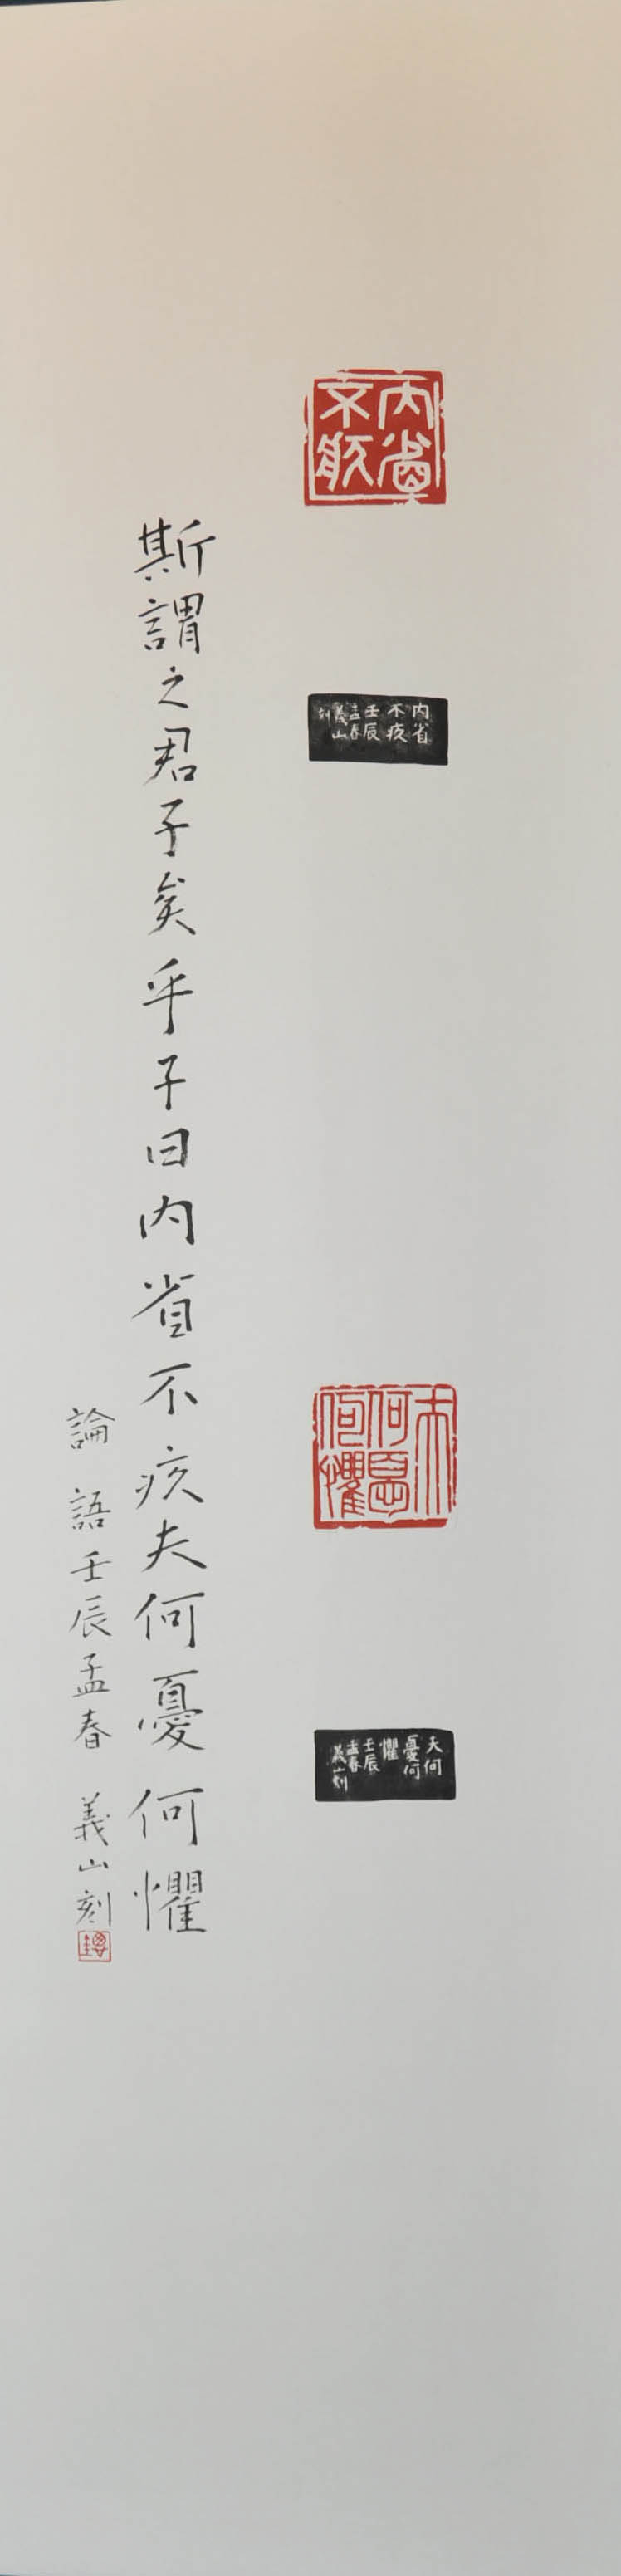 内省
不疚
内省
不疚
壬辰
孟春
義山
刻
夫
何憂
何懼
夫何
憂何
懼
壬辰
孟春
義山刻
斯謂之君子矣乎子曰内省不疚夫何憂何懼
論語壬辰孟春 義山刻